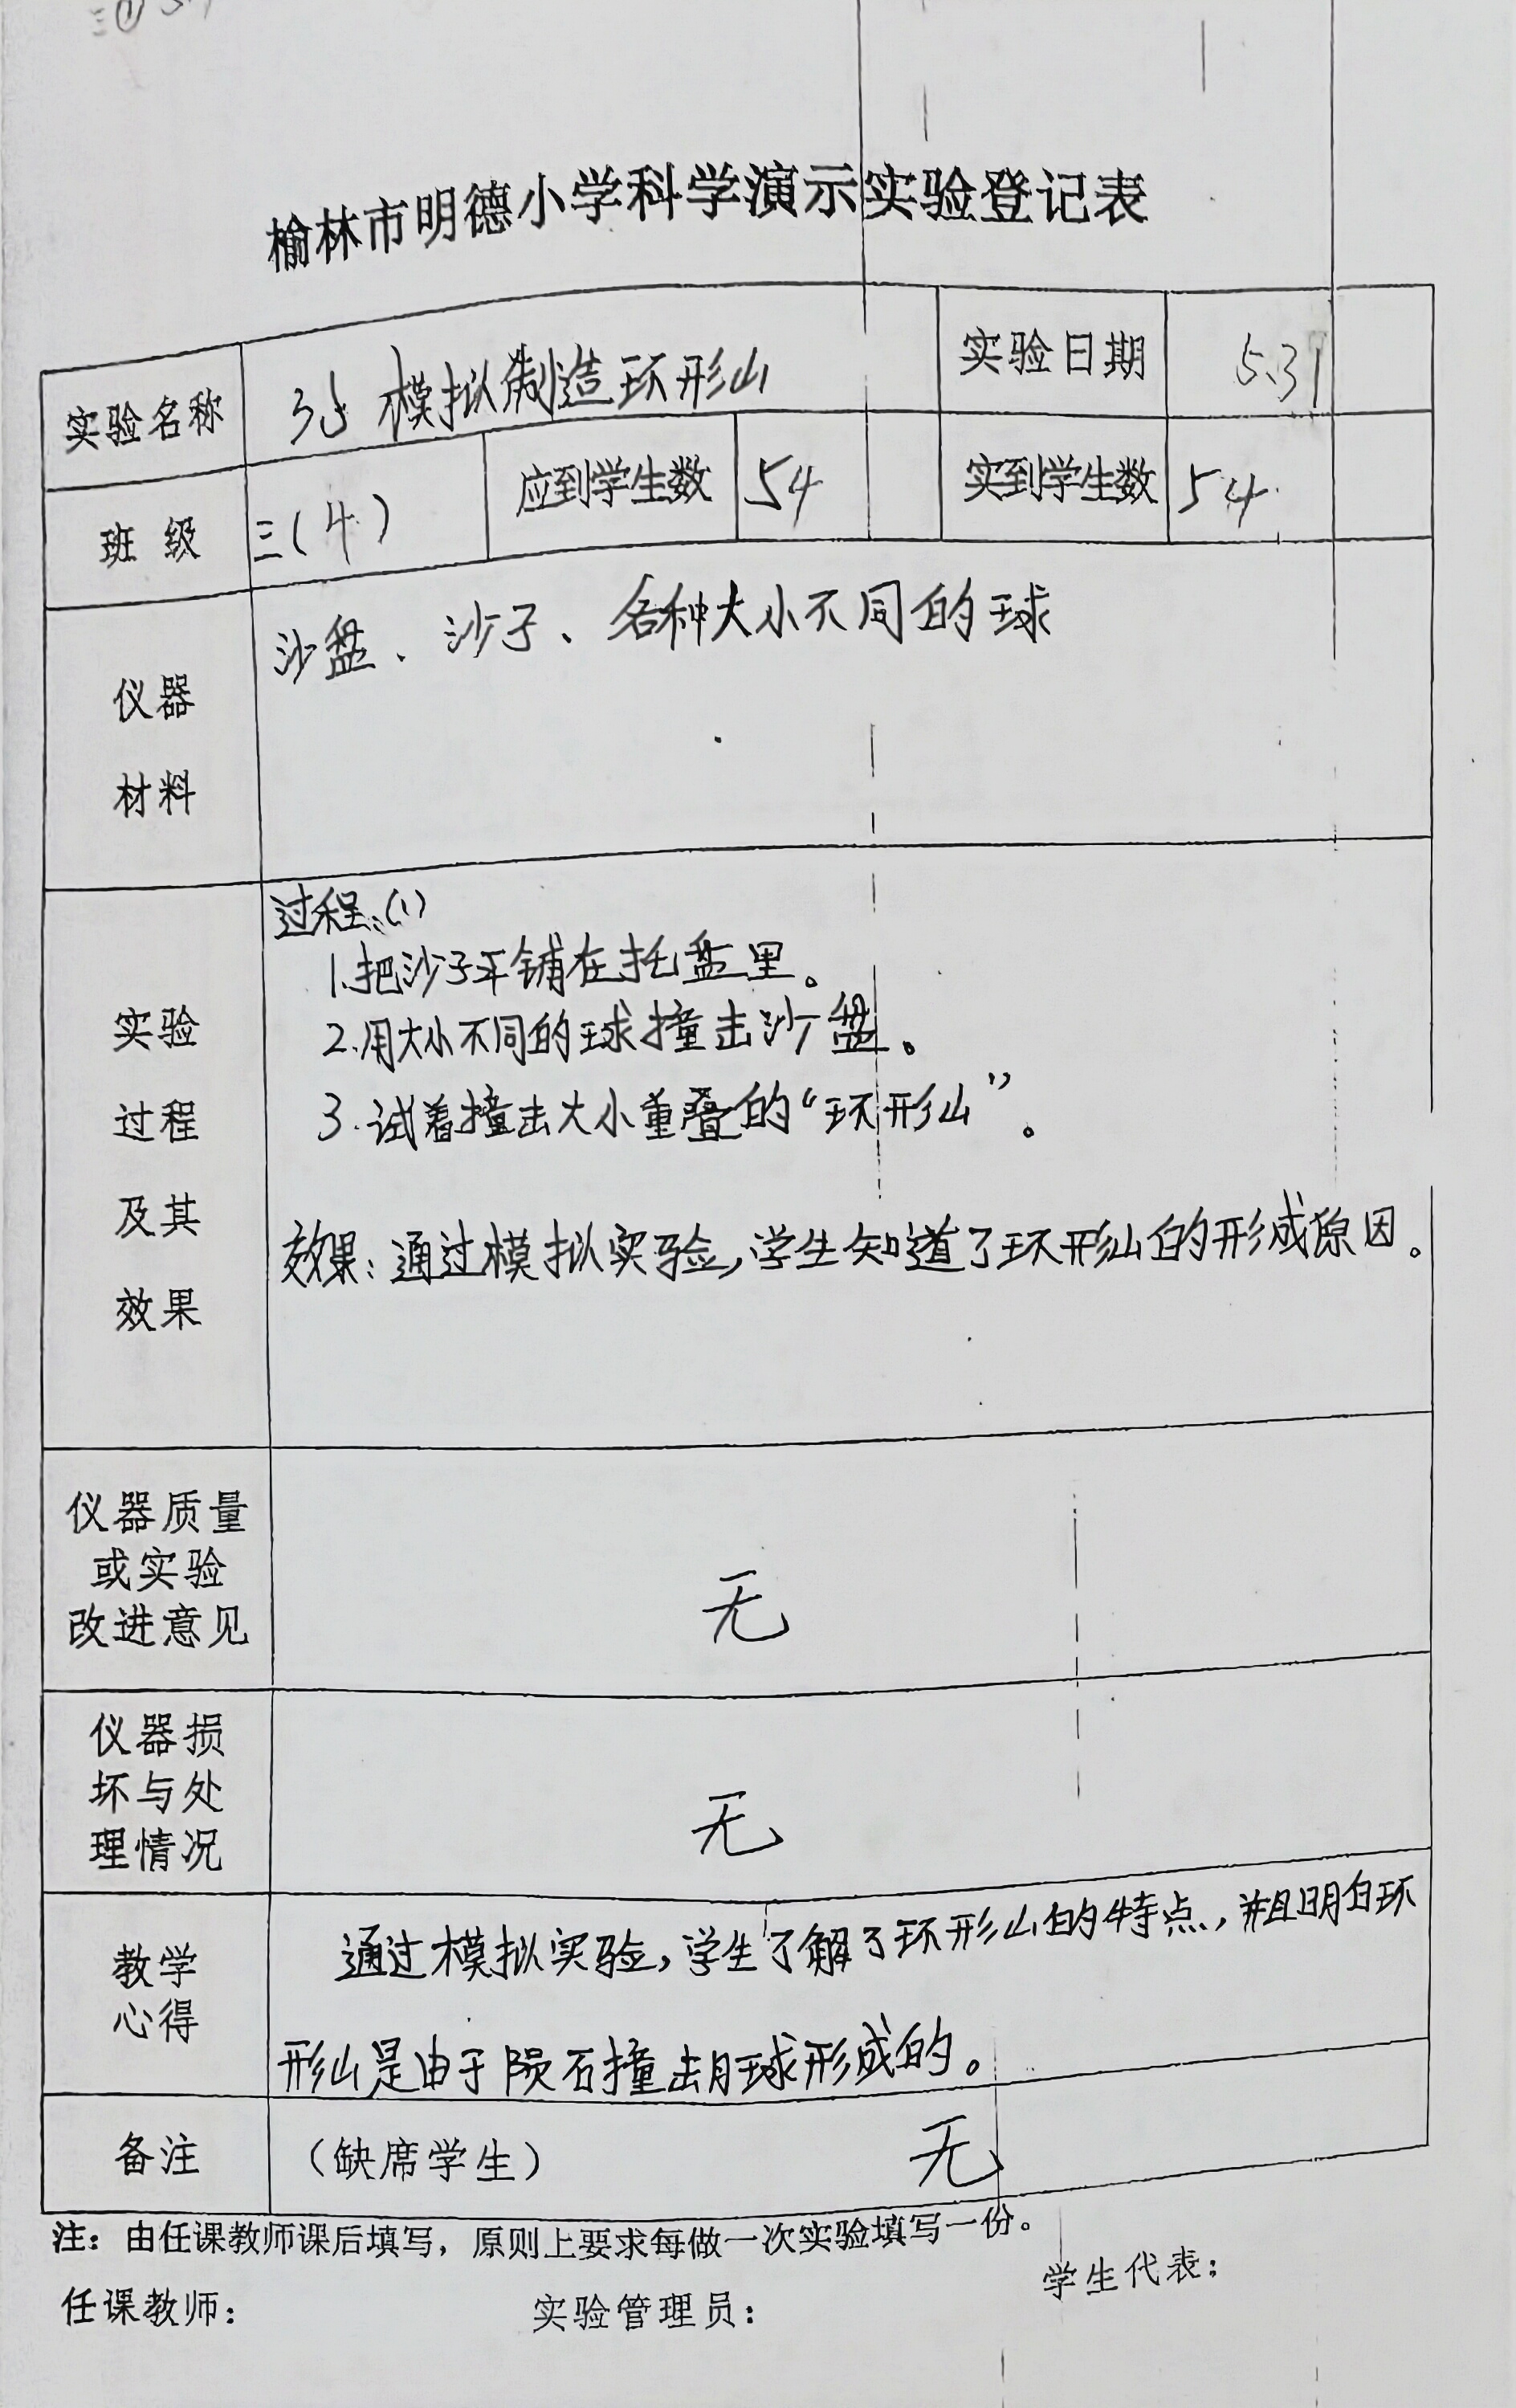 榆林市明德小学科学演示实验登记表
实验名称 模拟制造环形山 实验日期 5.31
班 级 三(4) 应到学生数 54 实到学生数 54
仪器
材料
沙盘、沙子、各种大小不同的球
实验
过程
及其
效果
过程:(1)
1.把沙子平铺在托盘里。
2.用大小不同的球撞击沙盘。
3.试着撞击大小重叠的“环形山”。
效果:通过模拟实验,学生知道了环形山的形成原因。
仪器质量
或实验
改进意见
无
仪器损
坏与处
理情况
无
教学
心得
通过模拟实验,学生了解了环形山的特点,并且明白环
形山是由于陨石撞击月球形成的。
备注 (缺席学生) 无
注:由任课教师课后填写,原则上要求每做一次实验填写一份。
任课教师: 实验管理员: 学生代表: